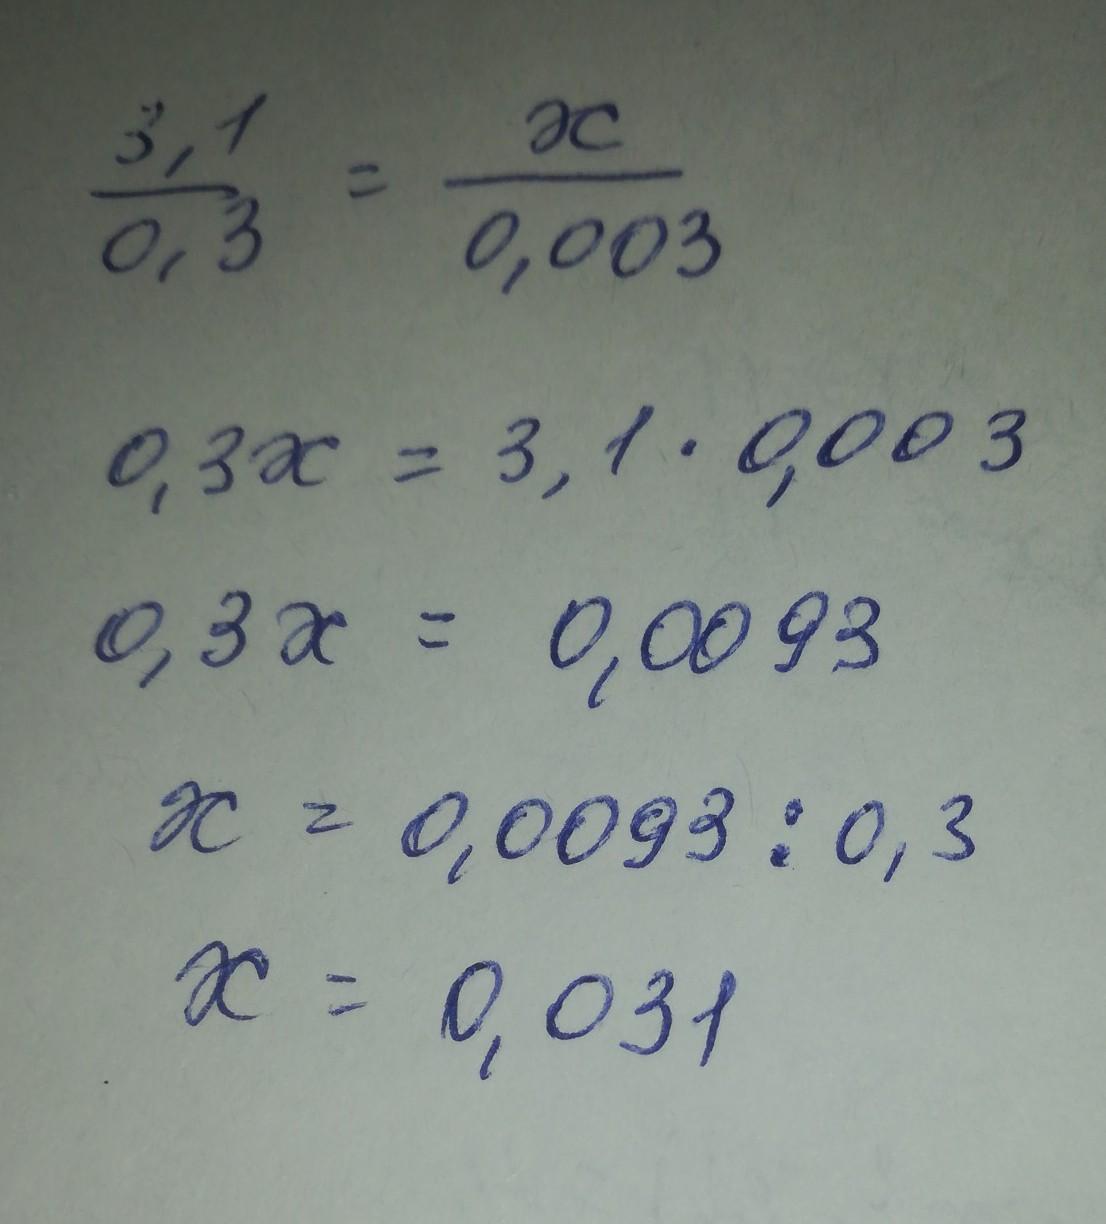 3,1/0,3 = x/0,003
0,3x = 3,1 · 0,003
0,3x = 0,0093
x = 0,0093 : 0,3
x = 0,031